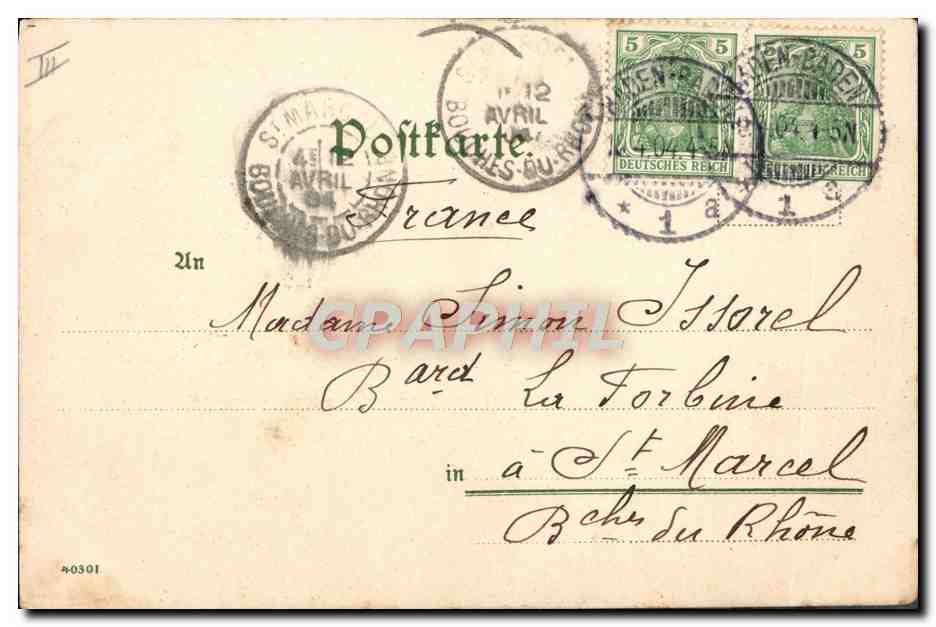 III
5 5
5 5
BADEN-BADEN
DEUTSCHES REICH
REICH
* 1 a
1 a
12
AVRIL
BOUCHES-DU-RHONE
ST MARCEL
AVRIL
04
BOUCHES-DU-RHONE
Postkarte.
France
An
Madame Simon Issorel
CPAPHIL
Bard La Forbine
in à St Marcel
Bches du Rhône
40301